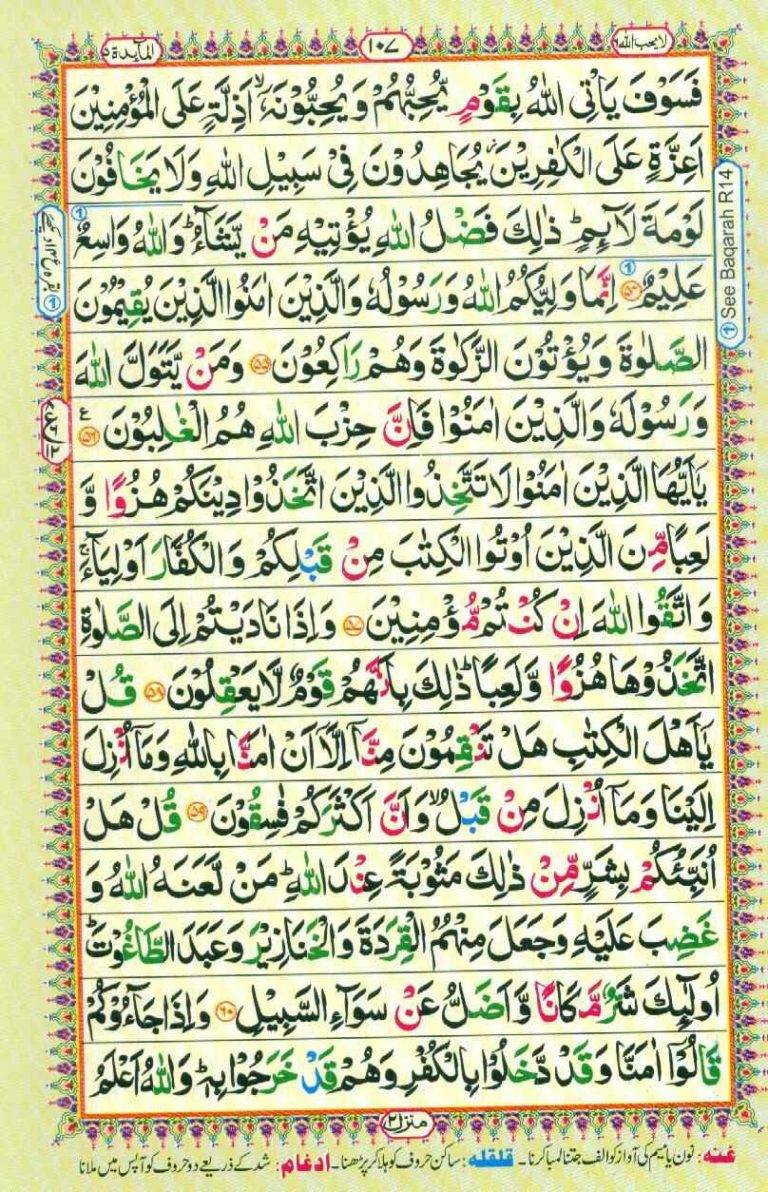 لا یحب اللہ ٦
١٠٧
المآئدة ٥
فَسَوْفَ يَاْتِى اللّٰهُ بِقَوْمٍ يُّحِبُّهُمْ وَيُحِبُّوْنَهٗۤ ۙ اَذِلَّةٍ عَلَى الْمُؤْمِنِيْنَ
اَعِزَّةٍ عَلَى الْكٰفِرِيْنَ ؗ يُجَاهِدُوْنَ فِىْ سَبِيْلِ اللّٰهِ وَلَا يَخَافُوْنَ
لَوْمَةَ لَآئِمٍ ؕ ذٰلِكَ فَضْلُ اللّٰهِ يُؤْتِيْهِ مَنْ يَّشَآءُ ؕ وَاللّٰهُ وَاسِعٌ
عَلِيْمٌ ﴿٥٤﴾ اِنَّمَا وَلِيُّكُمُ اللّٰهُ وَرَسُوْلُهٗ وَالَّذِيْنَ اٰمَنُوا الَّذِيْنَ يُقِيْمُوْنَ
الصَّلٰوةَ وَيُؤْتُوْنَ الزَّكٰوةَ وَهُمْ رَاكِعُوْنَ ﴿٥٥﴾ وَمَنْ يَّتَوَلَّ اللّٰهَ
وَرَسُوْلَهٗ وَالَّذِيْنَ اٰمَنُوْا فَاِنَّ حِزْبَ اللّٰهِ هُمُ الْغٰلِبُوْنَ ﴿٥٦﴾ ع
يٰۤاَيُّهَا الَّذِيْنَ اٰمَنُوْا لَا تَتَّخِذُوا الَّذِيْنَ اتَّخَذُوْا دِيْنَكُمْ هُزُوًا وَّ
لَعِبًا مِّنَ الَّذِيْنَ اُوْتُوا الْكِتٰبَ مِنْ قَبْلِكُمْ وَالْكُفَّارَ اَوْلِيَآءَ ۚ
وَاتَّقُوا اللّٰهَ اِنْ كُنْتُمْ مُّؤْمِنِيْنَ ﴿٥٧﴾ وَاِذَا نَادَيْتُمْ اِلَى الصَّلٰوةِ
اتَّخَذُوْهَا هُزُوًا وَّلَعِبًا ؕ ذٰلِكَ بِاَنَّهُمْ قَوْمٌ لَّا يَعْقِلُوْنَ ﴿٥٨﴾ قُلْ
يٰۤاَهْلَ الْكِتٰبِ هَلْ تَنْقِمُوْنَ مِنَّاۤ اِلَّاۤ اَنْ اٰمَنَّا بِاللّٰهِ وَمَاۤ اُنْزِلَ
اِلَيْنَا وَمَاۤ اُنْزِلَ مِنْ قَبْلُ ۙ وَاَنَّ اَكْثَرَكُمْ فٰسِقُوْنَ ﴿٥٩﴾ قُلْ هَلْ
اُنَبِّئُكُمْ بِشَرٍّ مِّنْ ذٰلِكَ مَثُوْبَةً عِنْدَ اللّٰهِ ؕ مَنْ لَّعَنَهُ اللّٰهُ وَ
غَضِبَ عَلَيْهِ وَجَعَلَ مِنْهُمُ الْقِرَدَةَ وَالْخَنَازِيْرَ وَعَبَدَ الطَّاغُوْتَ ؕ
اُولٰٓئِكَ شَرٌّ مَّكَانًا وَّاَضَلُّ عَنْ سَوَآءِ السَّبِيْلِ ﴿٦٠﴾ وَاِذَا جَآءُوْكُمْ
قَالُوْۤا اٰمَنَّا وَقَدْ دَّخَلُوْا بِالْكُفْرِ وَهُمْ قَدْ خَرَجُوْا بِهٖ ؕ وَاللّٰهُ اَعْلَمُ
① See Baqarah R14
منزل ٢
غنہ: نون یا میم کی آواز کو الف جتنا لمبا کرنا۔ قلقلہ: ساکن حروف کو ہلا کر پڑھنا۔ ادغام: شد کے ذریعے دو حروف کو آپس میں ملانا